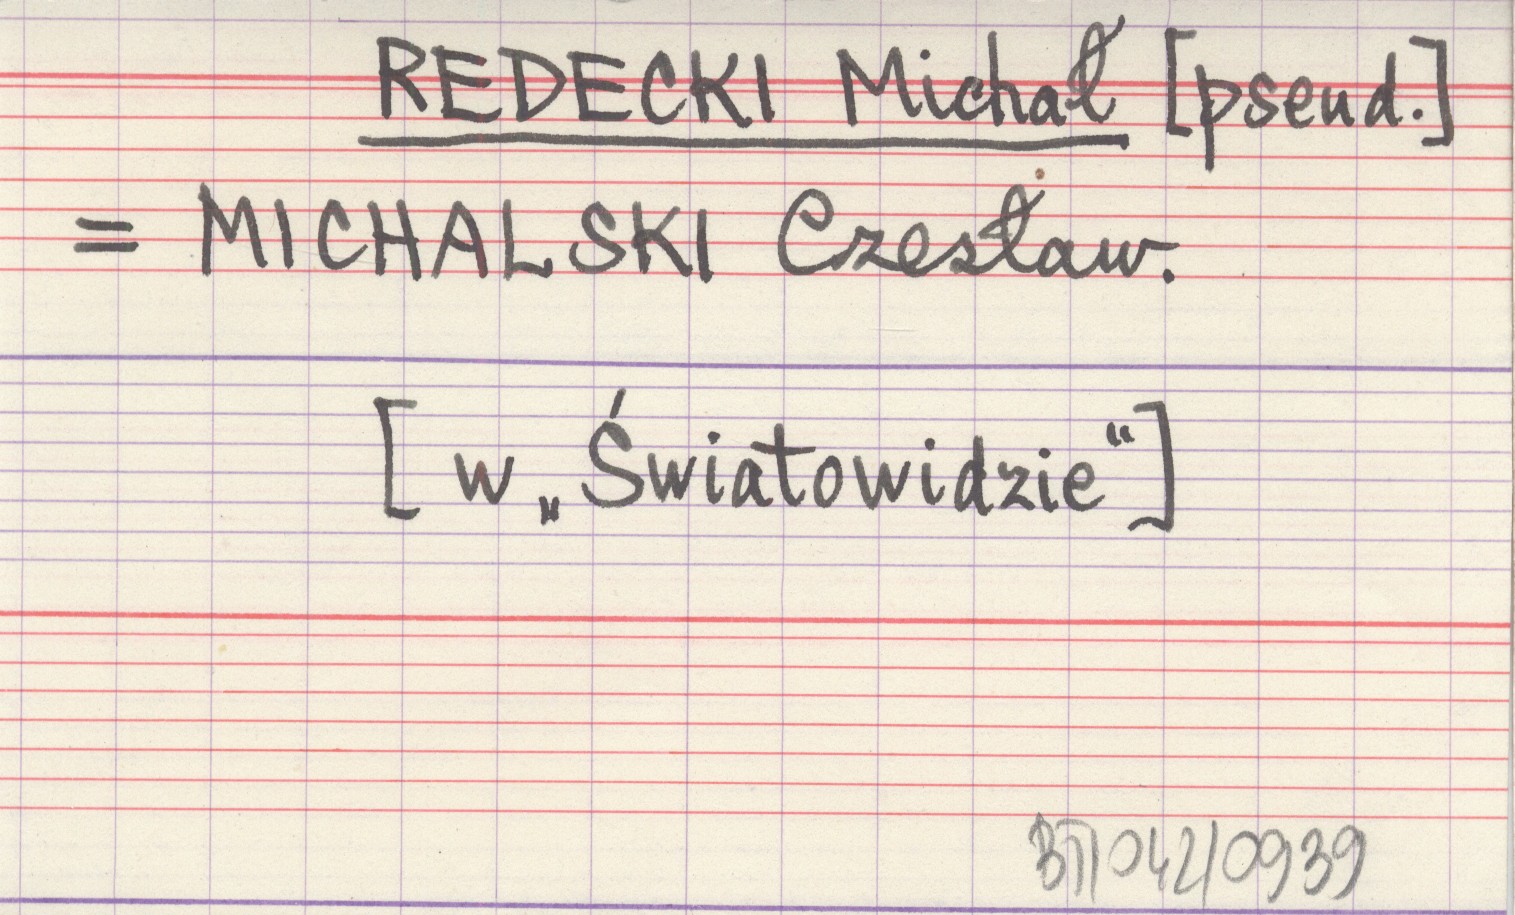 REDECKI Michał [pseud.]
= MICHALSKI Czesław.
[w „Światowidzie“]
BJ/042/0939